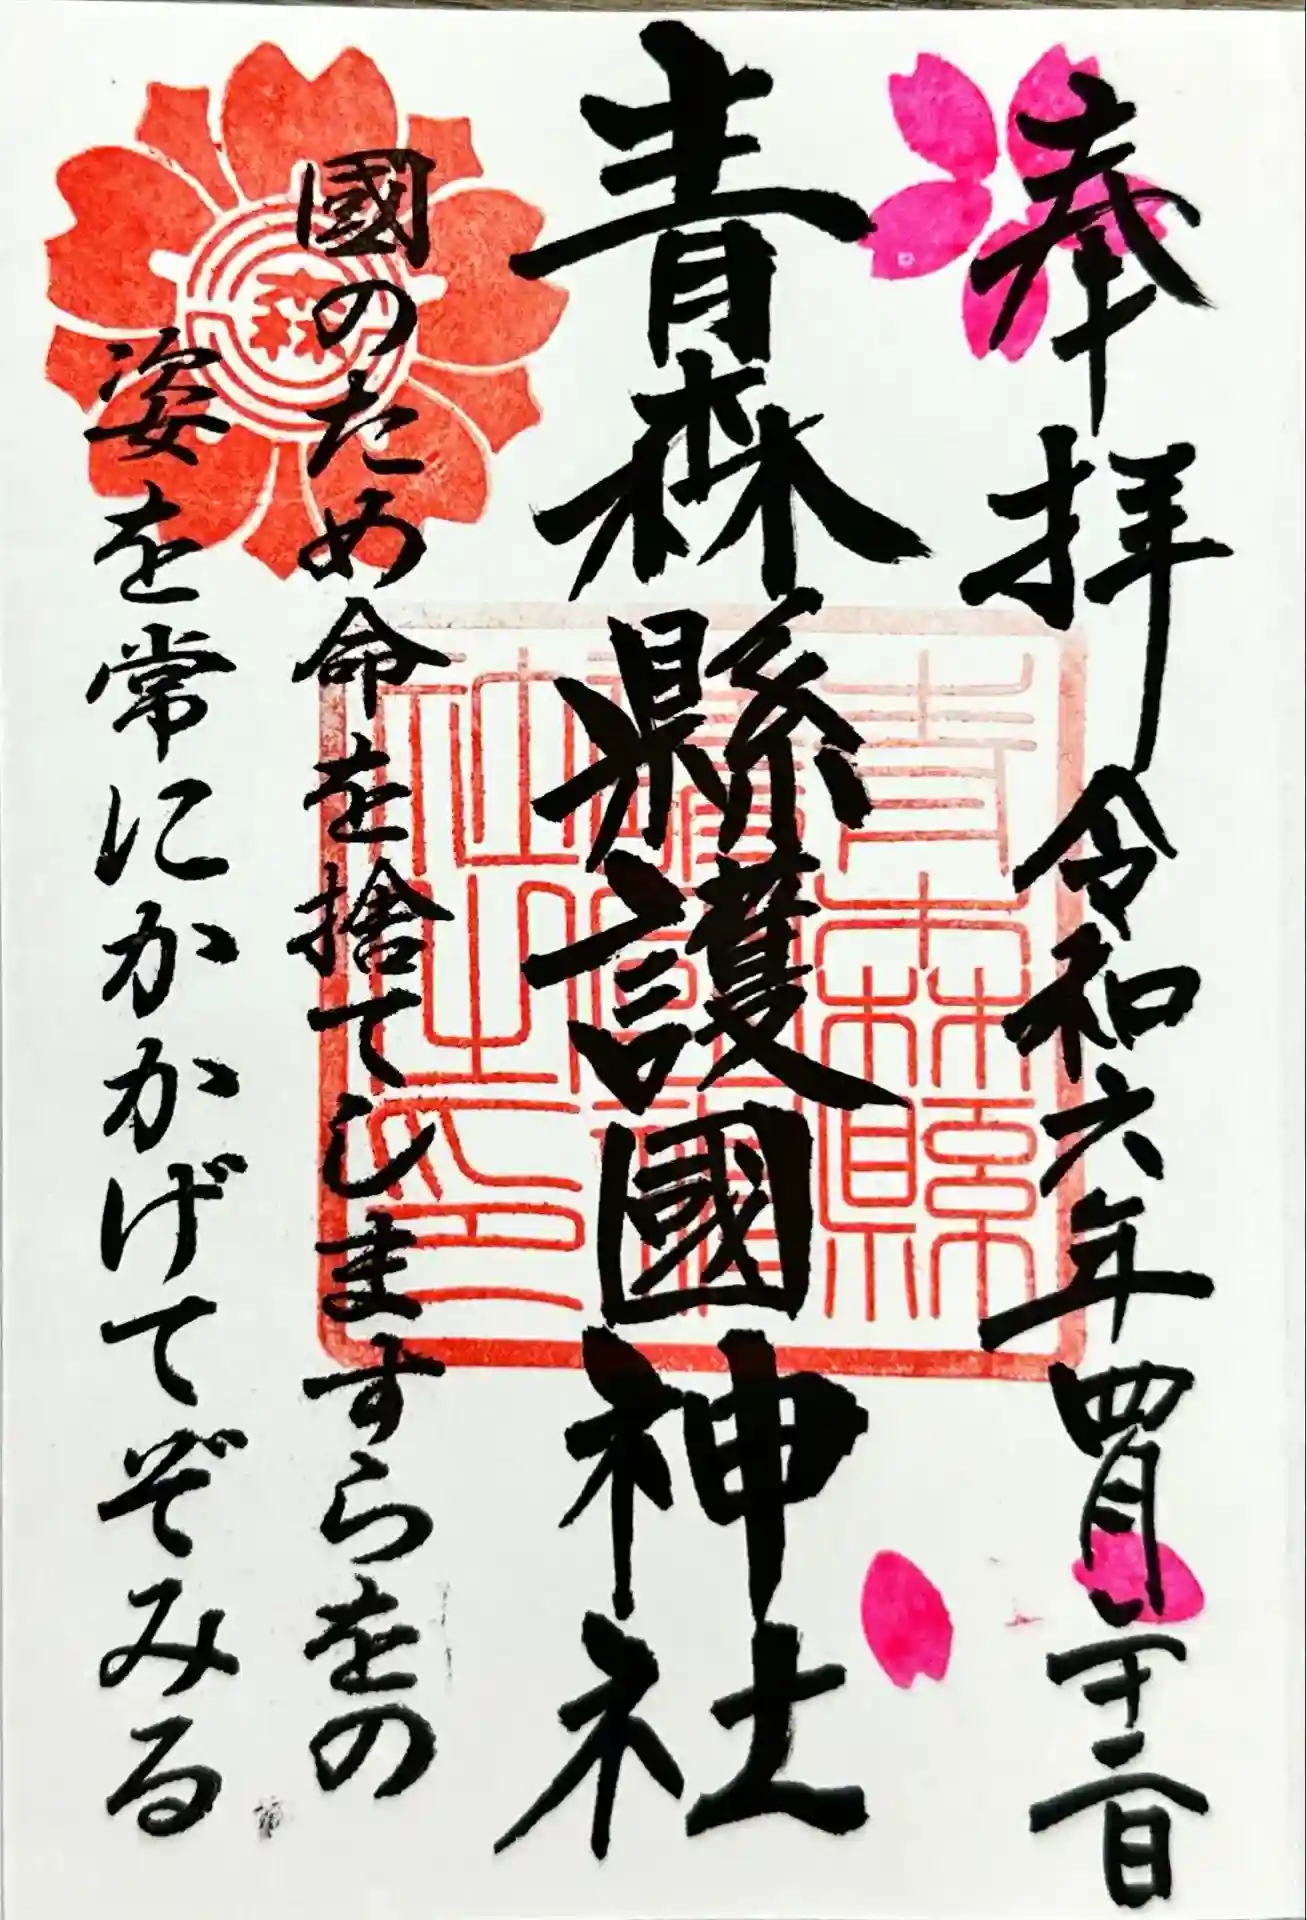 奉拝 令和六年四月二十二日
青森縣護國神社
國のため命を捨てしますらをの
姿を常にかかげてぞみる
森
青森縣
社之印